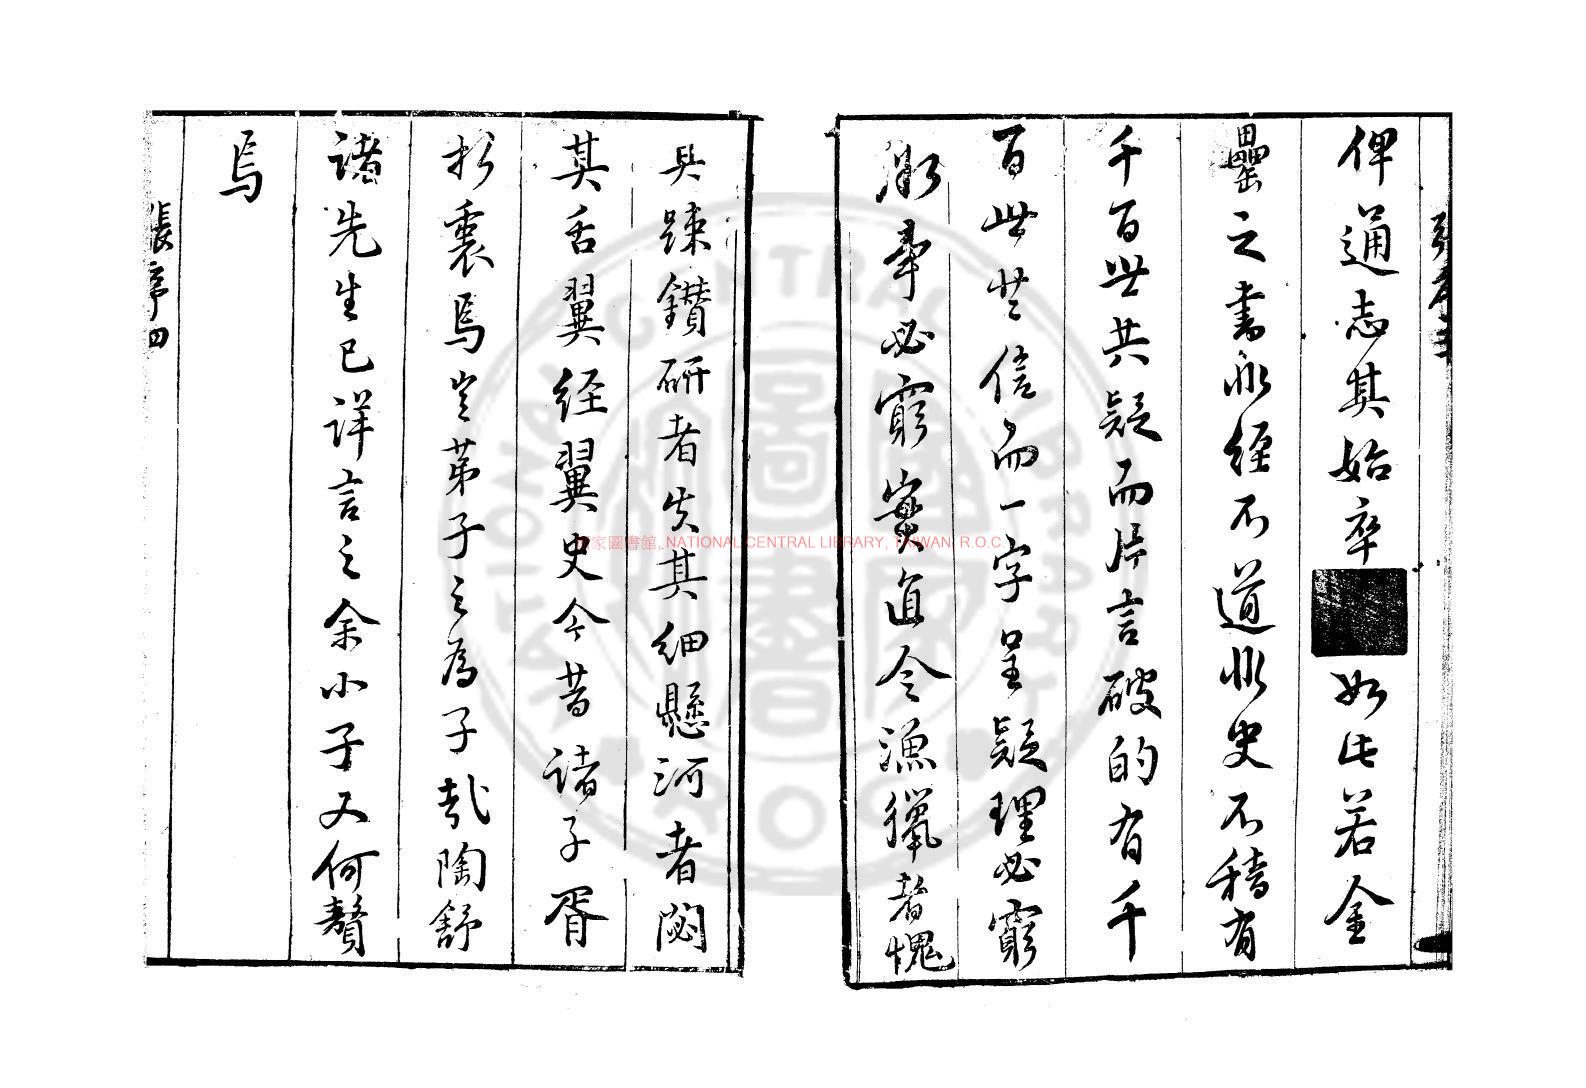 俾通志其始卒■如此若金
罍之書非經不道非史不稽有
千百世共疑而片言破的有千
百世共信而一字呈疑理必窮
淵事必窮實直令漁獵者愧
其踈鑽研者失其細懸河者閟
其舌翼經翼史今昔諸子胥
折衷焉豈弟子之為子哉陶舒
諸先生已詳言之余小子又何贅
焉
張序四
國家圖書館, NATIONAL CENTRAL LIBRARY, TAIWAN, R.O.C.